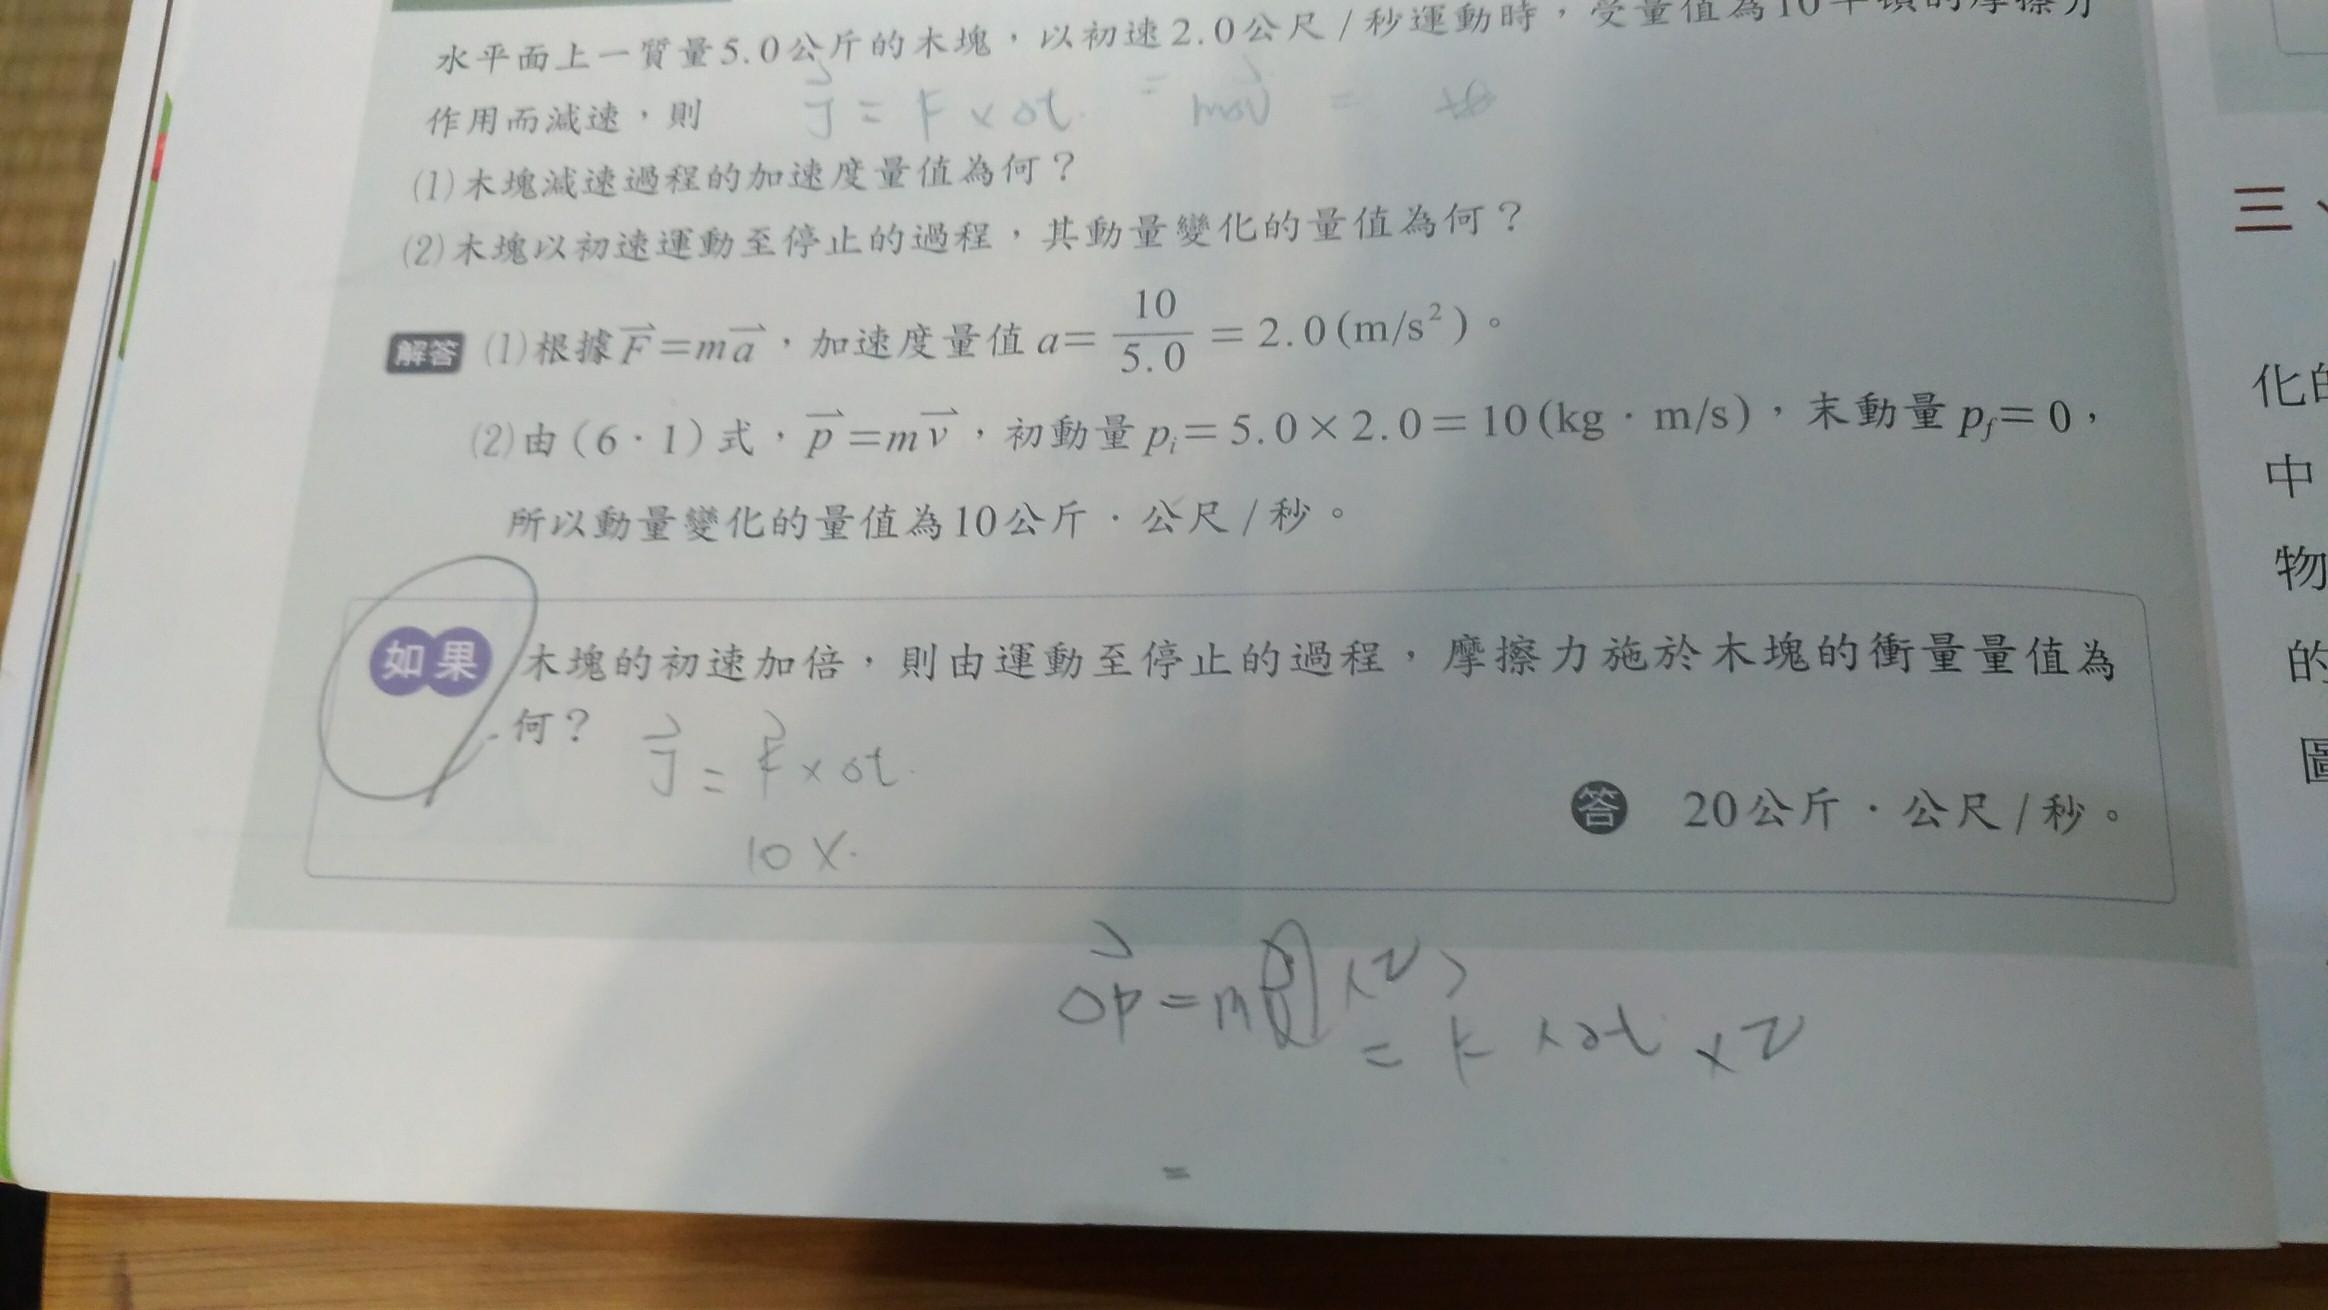 水平面上一質量5.0公斤的木塊，以初速2.0公尺/秒運動時，受量值為10牛頓的摩擦力
作用而減速，則
J = F × Δt = mΔv =
(1)木塊減速過程的加速度量值為何？
(2)木塊以初速運動至停止的過程，其動量變化的量值為何？
解答 (1)根據F=ma，加速度量值a=10/5.0=2.0(m/s²)。
(2)由(6·1)式，p=mv，初動量pᵢ=5.0×2.0=10(kg·m/s)，末動量p_f=0，
所以動量變化的量值為10公斤·公尺/秒。
如果 木塊的初速加倍，則由運動至停止的過程，摩擦力施於木塊的衝量量值為
何？
J = F × Δt
10 ×
答 20公斤·公尺/秒。
Δp = m ×2
= F × Δt × 2
=
三、
化的
中
物
的
圖